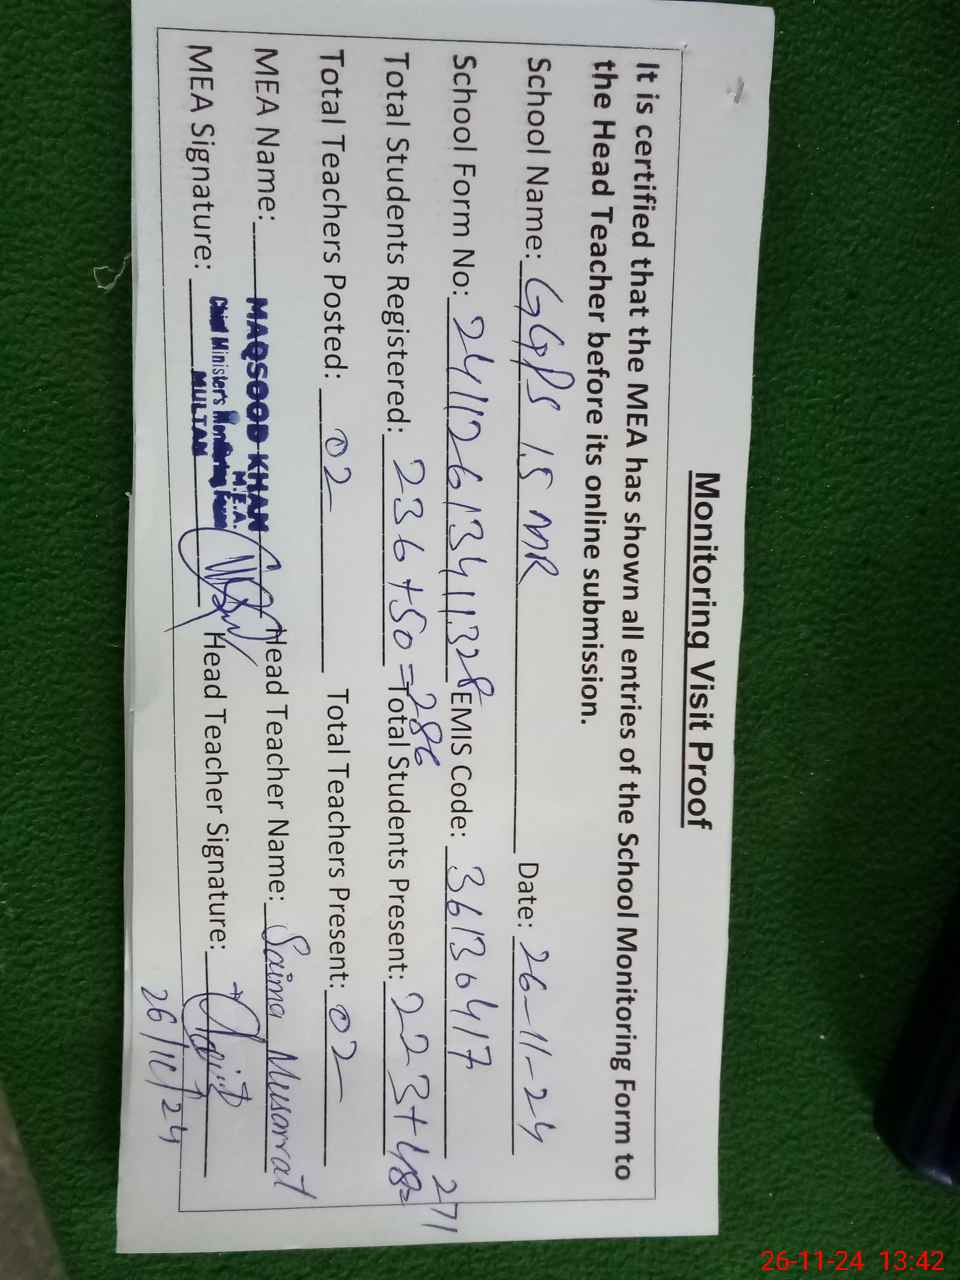 Monitoring Visit Proof
It is certified that the MEA has shown all entries of the School Monitoring Form to
the Head Teacher before its online submission.
School Name: GGPS 15 MR Date: 26-11-24
School Form No: 241126134411328 EMIS Code: 36130417
Total Students Registered: 236+50=286 Total Students Present: 223+48=271
Total Teachers Posted: 02 Total Teachers Present: 02
MEA Name: MAQSOOD KHAN Head Teacher Name: Saima Musarrat
M.E.A.
Chief Minister's Monitoring Force
MULTAN
MEA Signature: Head Teacher Signature:
26/11/24
26-11-24 13:42